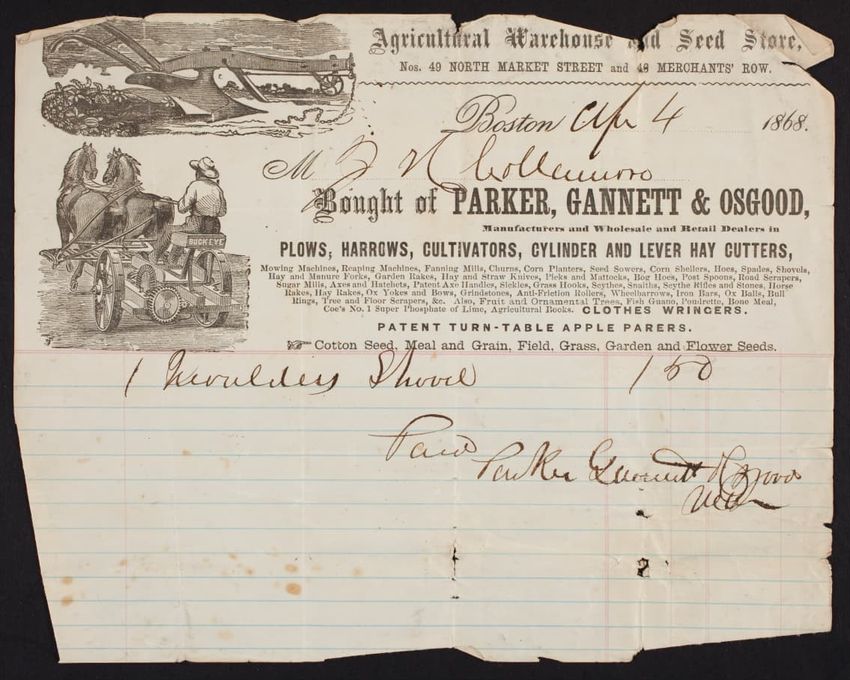 Agricultural Warehouse and Seed Store,
Nos. 49 NORTH MARKET STREET and 48 MERCHANTS' ROW.
Boston Apr 4 1868.
M J N Collamore
Bought of PARKER, GANNETT & OSGOOD,
Manufacturers and Wholesale and Retail Dealers in
PLOWS, HARROWS, CULTIVATORS, CYLINDER AND LEVER HAY CUTTERS,
Mowing Machines, Reaping Machines, Fanning Mills, Churns, Corn Planters, Seed Sowers, Corn Shellers, Hoes, Spades, Shovels,
Hay and Manure Forks, Garden Rakes, Hay and Straw Knives, Picks and Mattocks, Bog Hoes, Post Spoons, Road Scrapers,
Sugar Mills, Axes and Hatchets, Patent Axe Handles, Sickles, Grass Hooks, Scythes, Snaiths, Scythe Rifles and Stones, Horse
Rakes, Hay Rakes, Ox Yokes and Bows, Grindstones, Anti-Friction Rollers, Wheelbarrows, Iron Bars, Ox Balls, Bull
Rings, Tree and Floor Scrapers, &c. Also, Fruit and Ornamental Trees, Fish Guano, Poudrette, Bone Meal,
Coe's No. 1 Super Phosphate of Lime, Agricultural Books. CLOTHES WRINGERS.
PATENT TURN-TABLE APPLE PARERS.
Cotton Seed, Meal and Grain, Field, Grass, Garden and Flower Seeds.
BUCKEYE
1 Moulders Shovel 1 50
Paid
Parker Gannett & Osgood